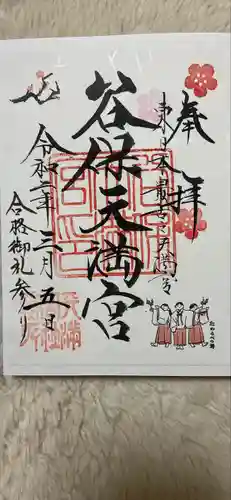 奉拝
東日本最古之天満宮
谷保天満宮
令和二年三月五日
合格御礼参り